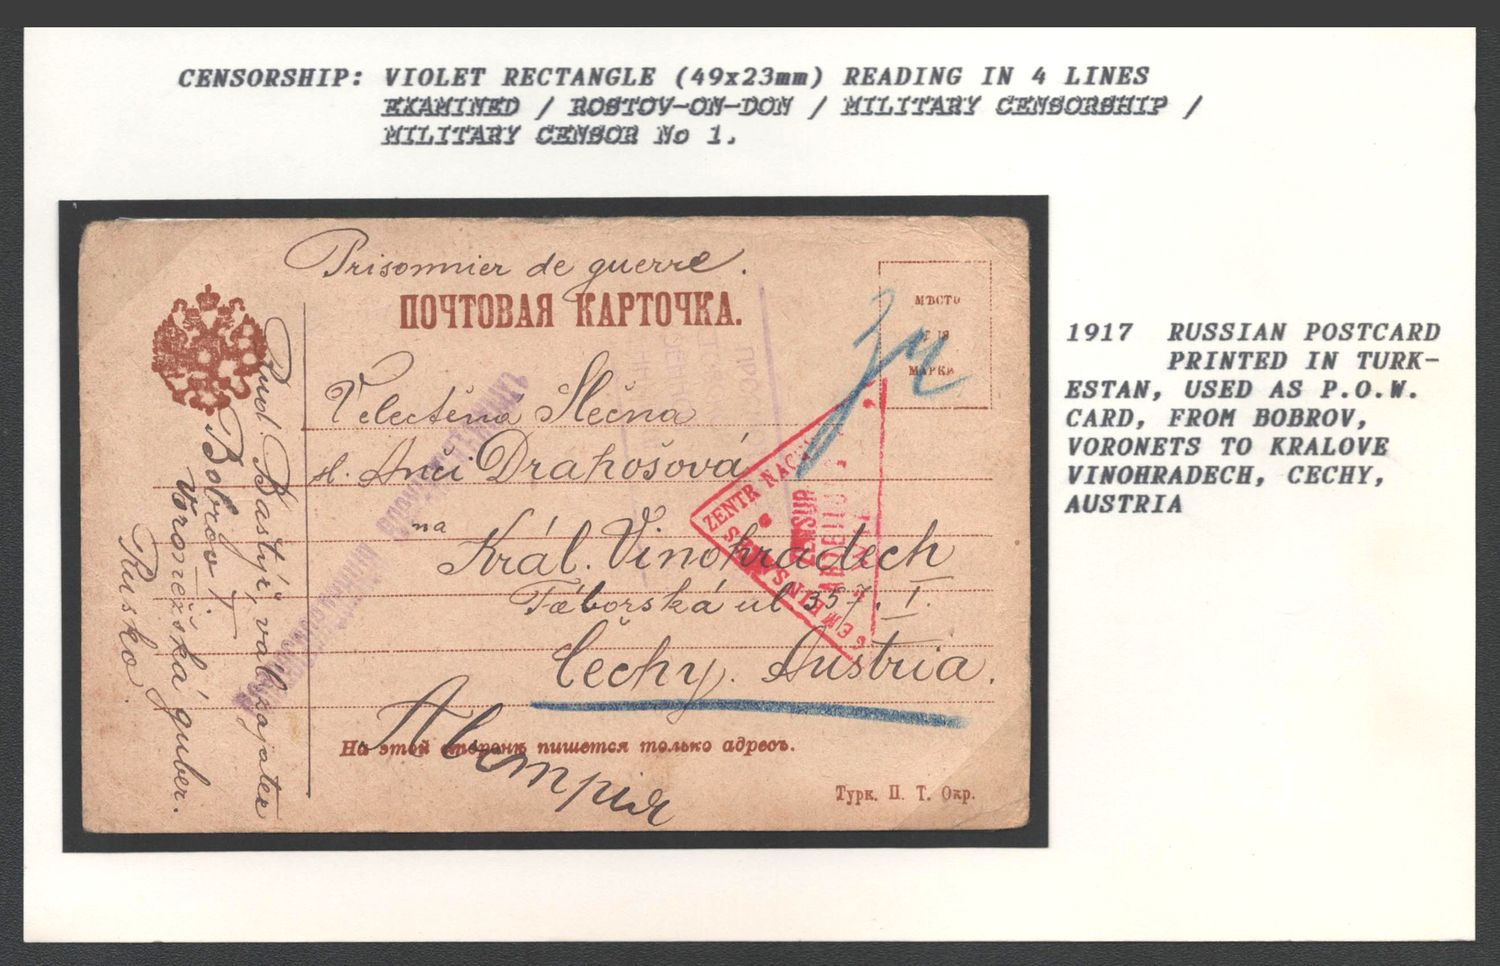 CENSORSHIP: VIOLET RECTANGLE (49x23mm) READING IN 4 LINES
EXAMINED / ROSTOV-ON-DON / MILITARY CENSORSHIP /
MILITARY CENSOR No 1.
Prisonnier de guerre.
ПОЧТОВАЯ КАРТОЧКА.
МѢСТО
ДЛЯ
МАРКИ
Velectěná Slečna
sl. Anči Drahošová
na
Král. Vinohradech
Táborská ul 357. I.
Čechy. Austria.
Австрія
На этой сторонѣ пишется только адресъ.
Турк. П. Т. Окр.
Rud Bastýř, val. zajatec
Bobrov
Voroněžská guber.
Rusko.
ZENTR NACH
CENSUR
1917 RUSSIAN POSTCARD
PRINTED IN TURK-
ESTAN, USED AS P.O.W.
CARD, FROM BOBROV,
VORONETS TO KRALOVE
VINOHRADECH, CECHY,
AUSTRIA